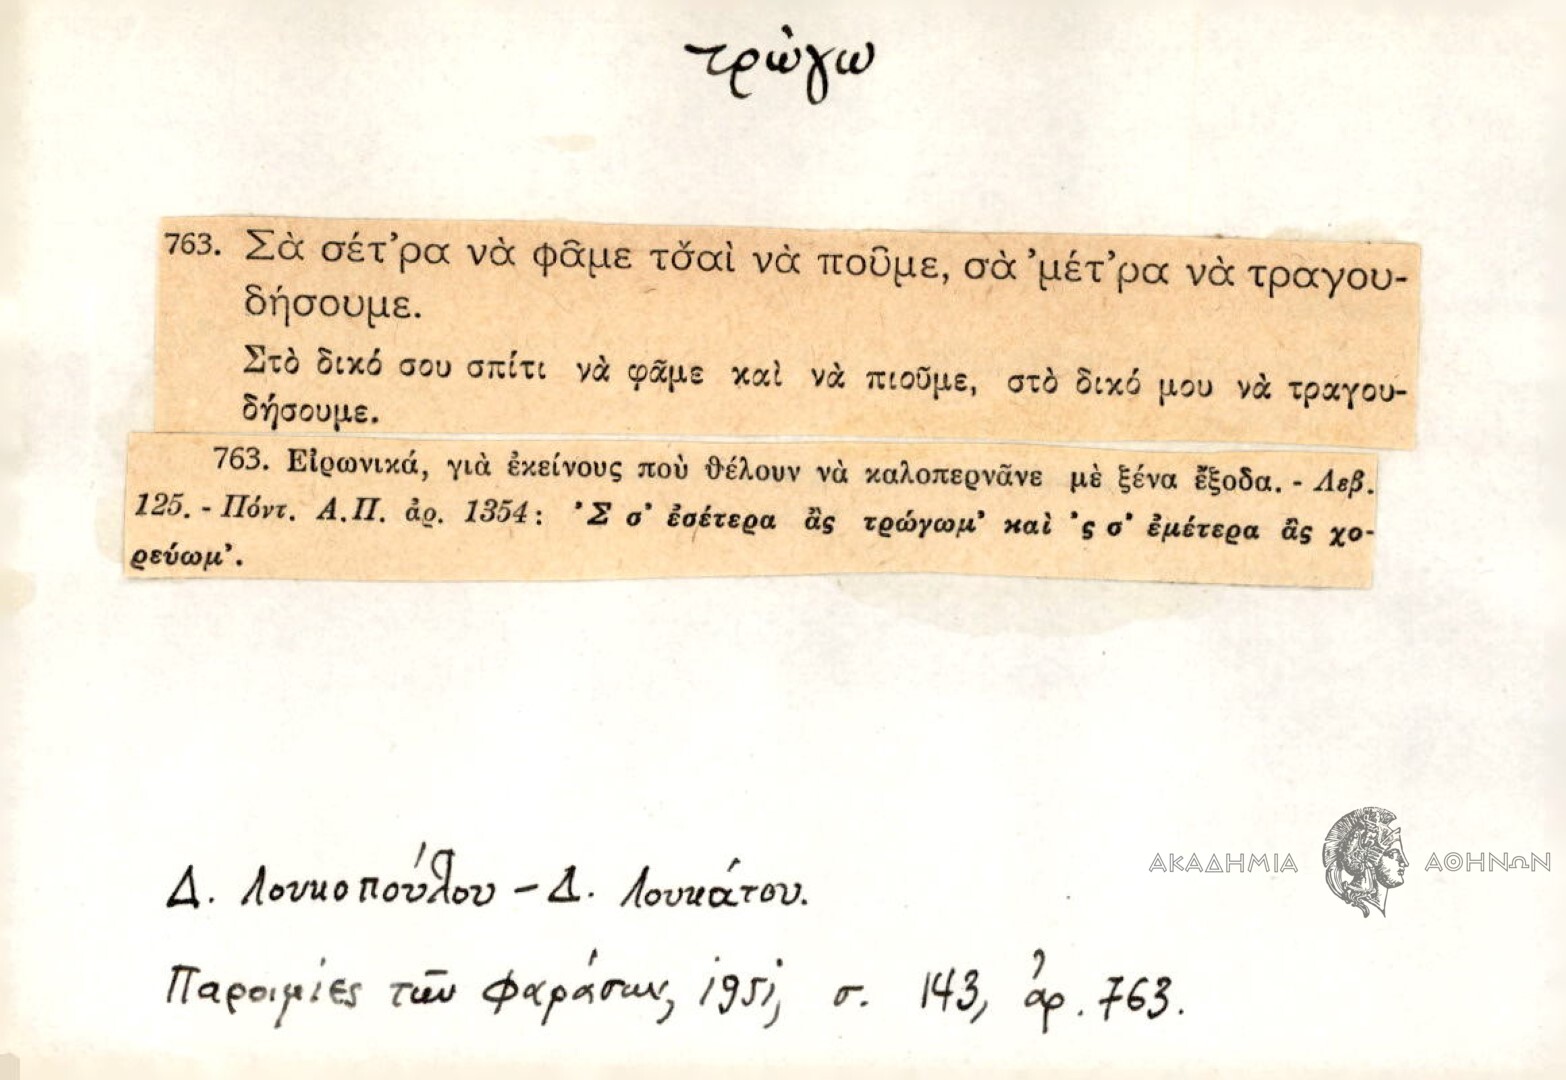 τρώγω
763. Σὰ σέτ'ρα νὰ φᾶμε τσ̌αὶ νὰ ποῦμε, σὰ 'μέτ'ρα νὰ τραγου-
δήσουμε.
Στὸ δικό σου σπίτι νὰ φᾶμε καὶ νὰ πιοῦμε, στὸ δικό μου νὰ τραγου-
δήσουμε.
763. Εἰρωνικά, γιὰ ἐκείνους ποὺ θέλουν νὰ καλοπερνᾶνε μὲ ξένα ἔξοδα. - Λεβ.
125. - Πόντ. Α.Π. ἀρ. 1354: 'Σ σ' ἐσέτερα ἂς τρώγωμ' καὶ 'ς σ' ἐμέτερα ἂς χο-
ρεύωμ'.
ΑΚΑΔΗΜΙΑ ΑΘΗΝΩΝ
Δ. Λουκοπούλου - Δ. Λουκάτου.
Παροιμίες τῶν Φαράσων, 1951, σ. 143, ἀρ. 763.